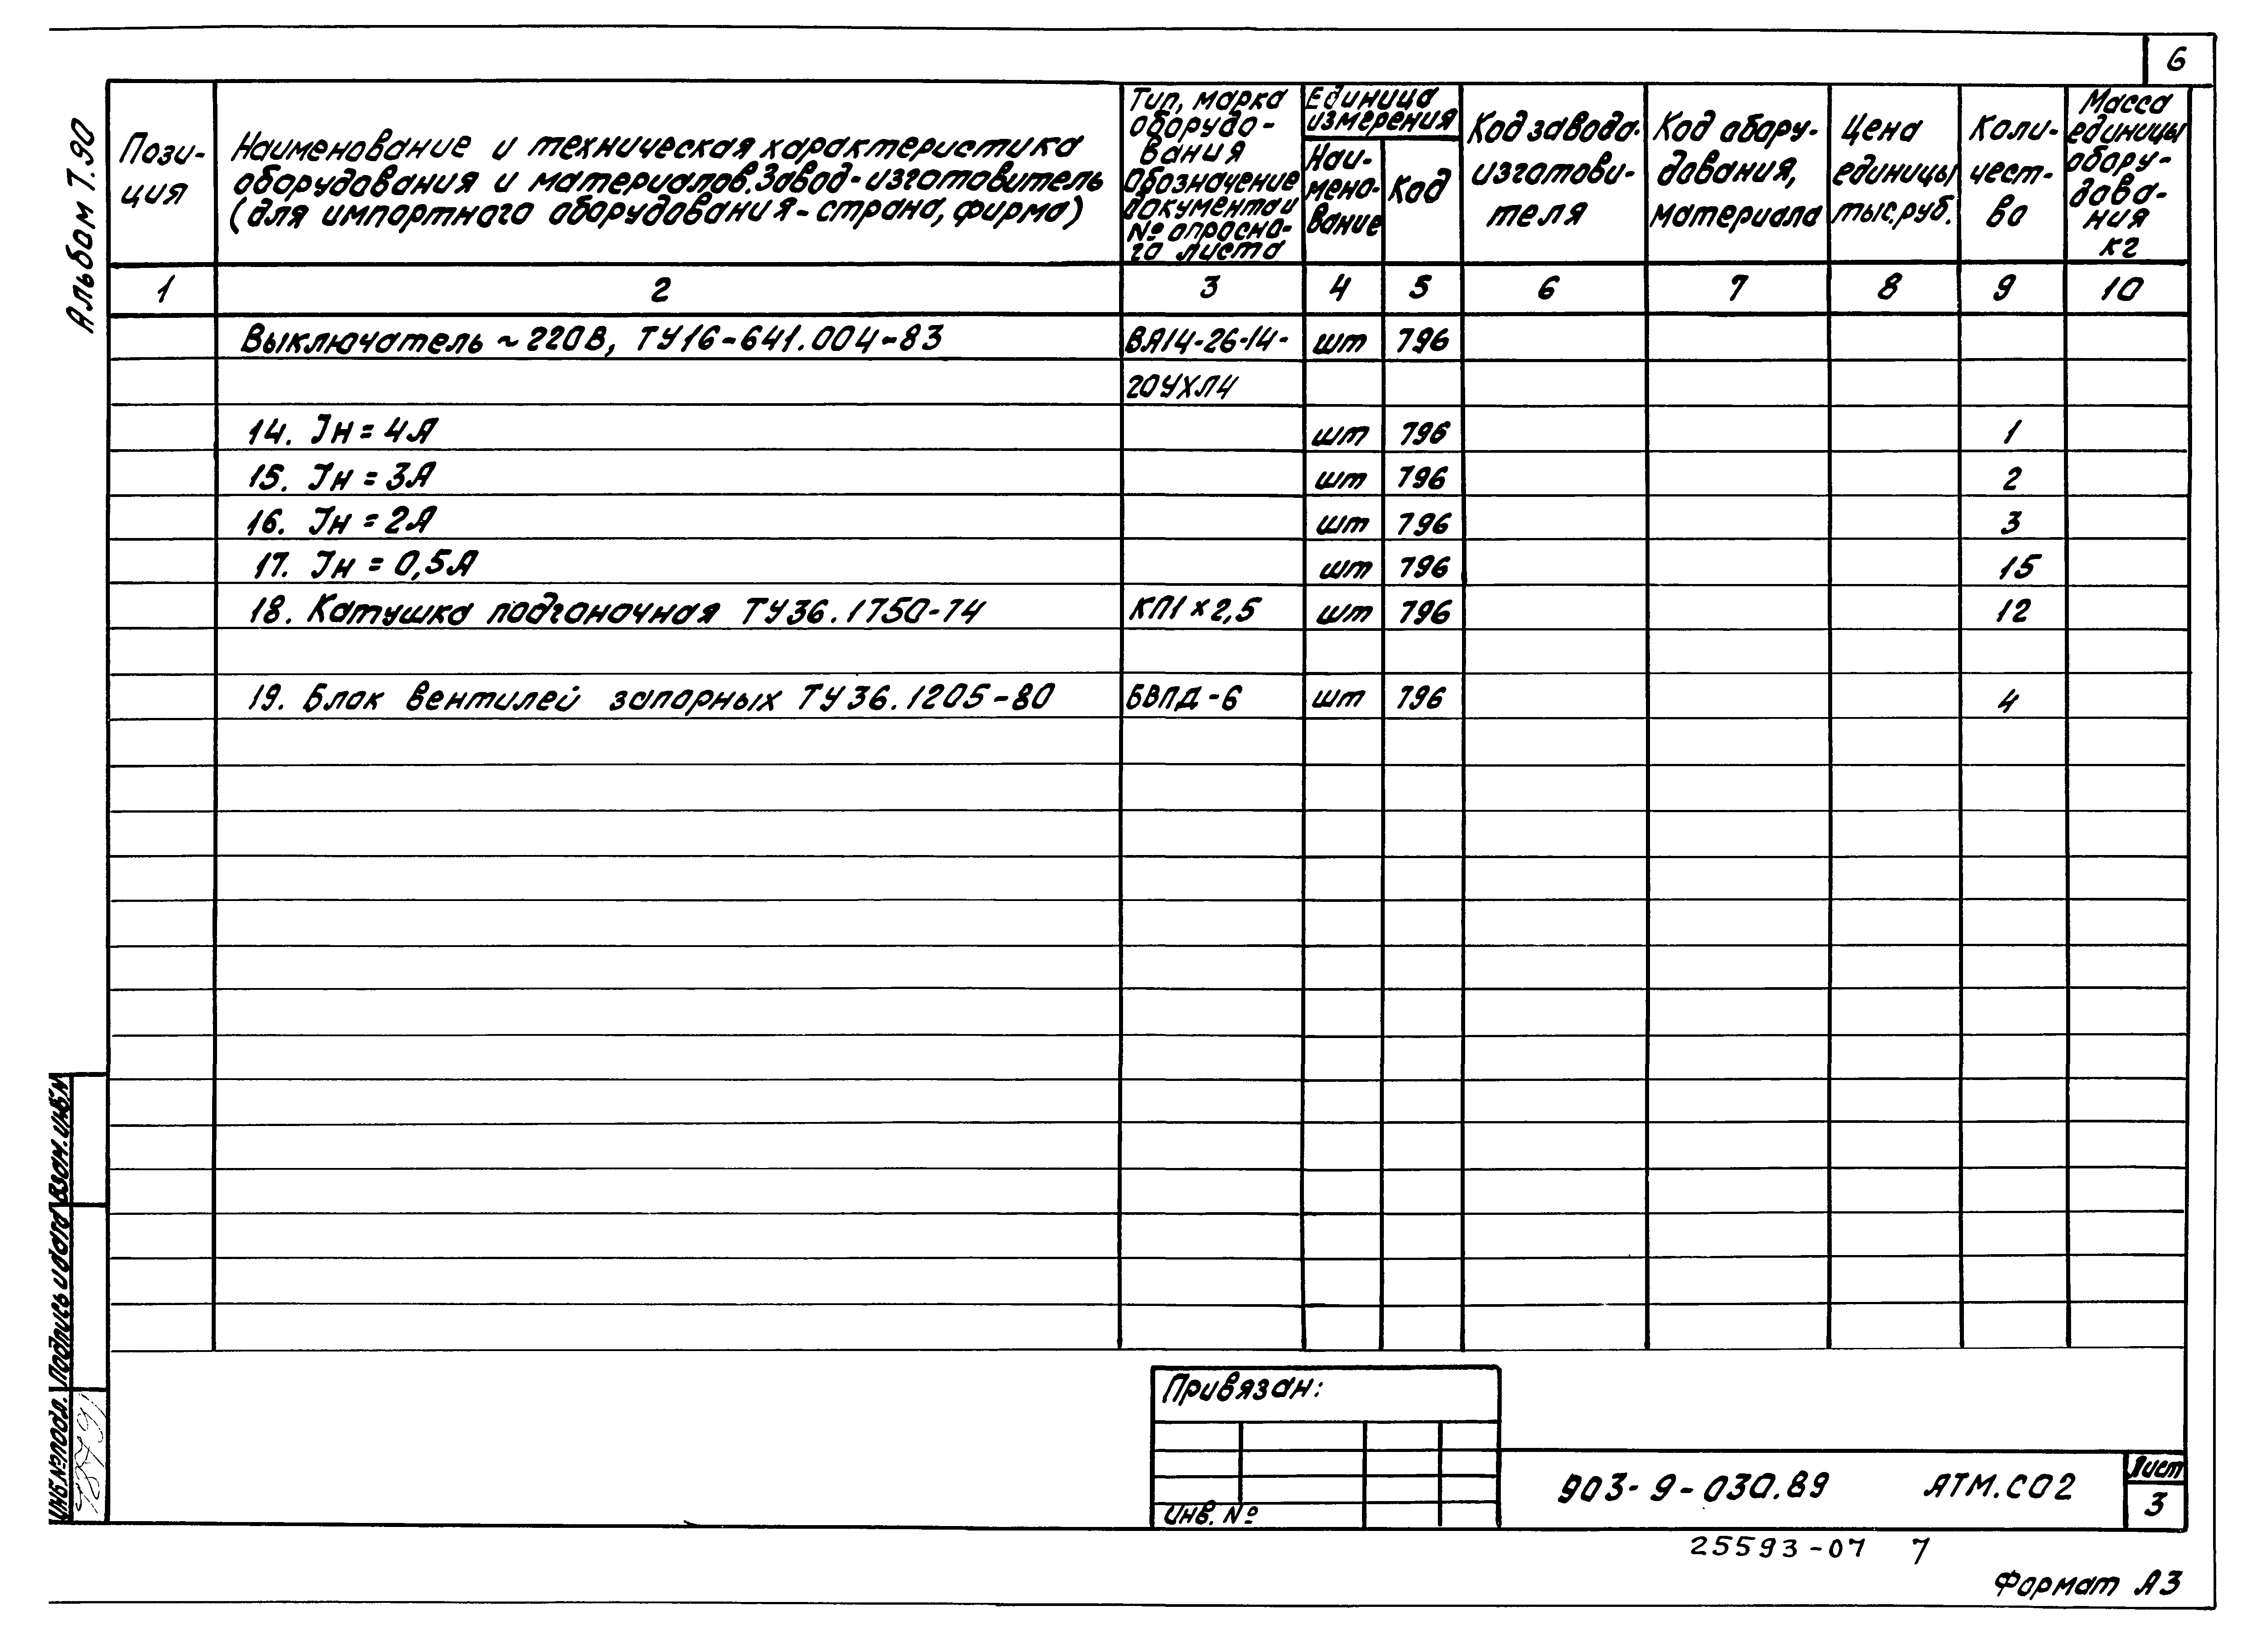 6
Альбом 7.90
Пози-
ция
Наименование и техническая характеристика
оборудования и материалов. Завод-изготовитель
(для импортного оборудования - страна, фирма)
Тип, марка
оборудо-
вания
Обозначение
документа и
№ опросно-
го листа
Единица
измерения
Наи-
мено-
вание
Код
Код завода-
изготови-
теля
Код обору-
дования,
материала
Цена
единицы
тыс.руб.
Коли-
чест-
во
Масса
единицы
обору-
дова-
ния
кг
1 2 3 4 5 6 7 8 9 10
Выключатель ~ 220В, ТУ16-641.004-83 ВА14-26-14- шт 796
20УХЛ4
14. Iн = 4А шт 796 1
15. Iн = 3А шт 796 2
16. Iн = 2А шт 796 3
17. Iн = 0,5А шт 796 15
18. Катушка подгоночная ТУ36.1750-74 КП1×2,5 шт 796 12
19. Блок вентилей запорных ТУ36.1205-80 БВПД-6 шт 796 4
Взам. инв.№
Подпись и дата
Инв.№подл.
Привязан:
Инв. №
903-9-030.89 АТМ.СО2
Лист
3
25593-07 7
Формат А3